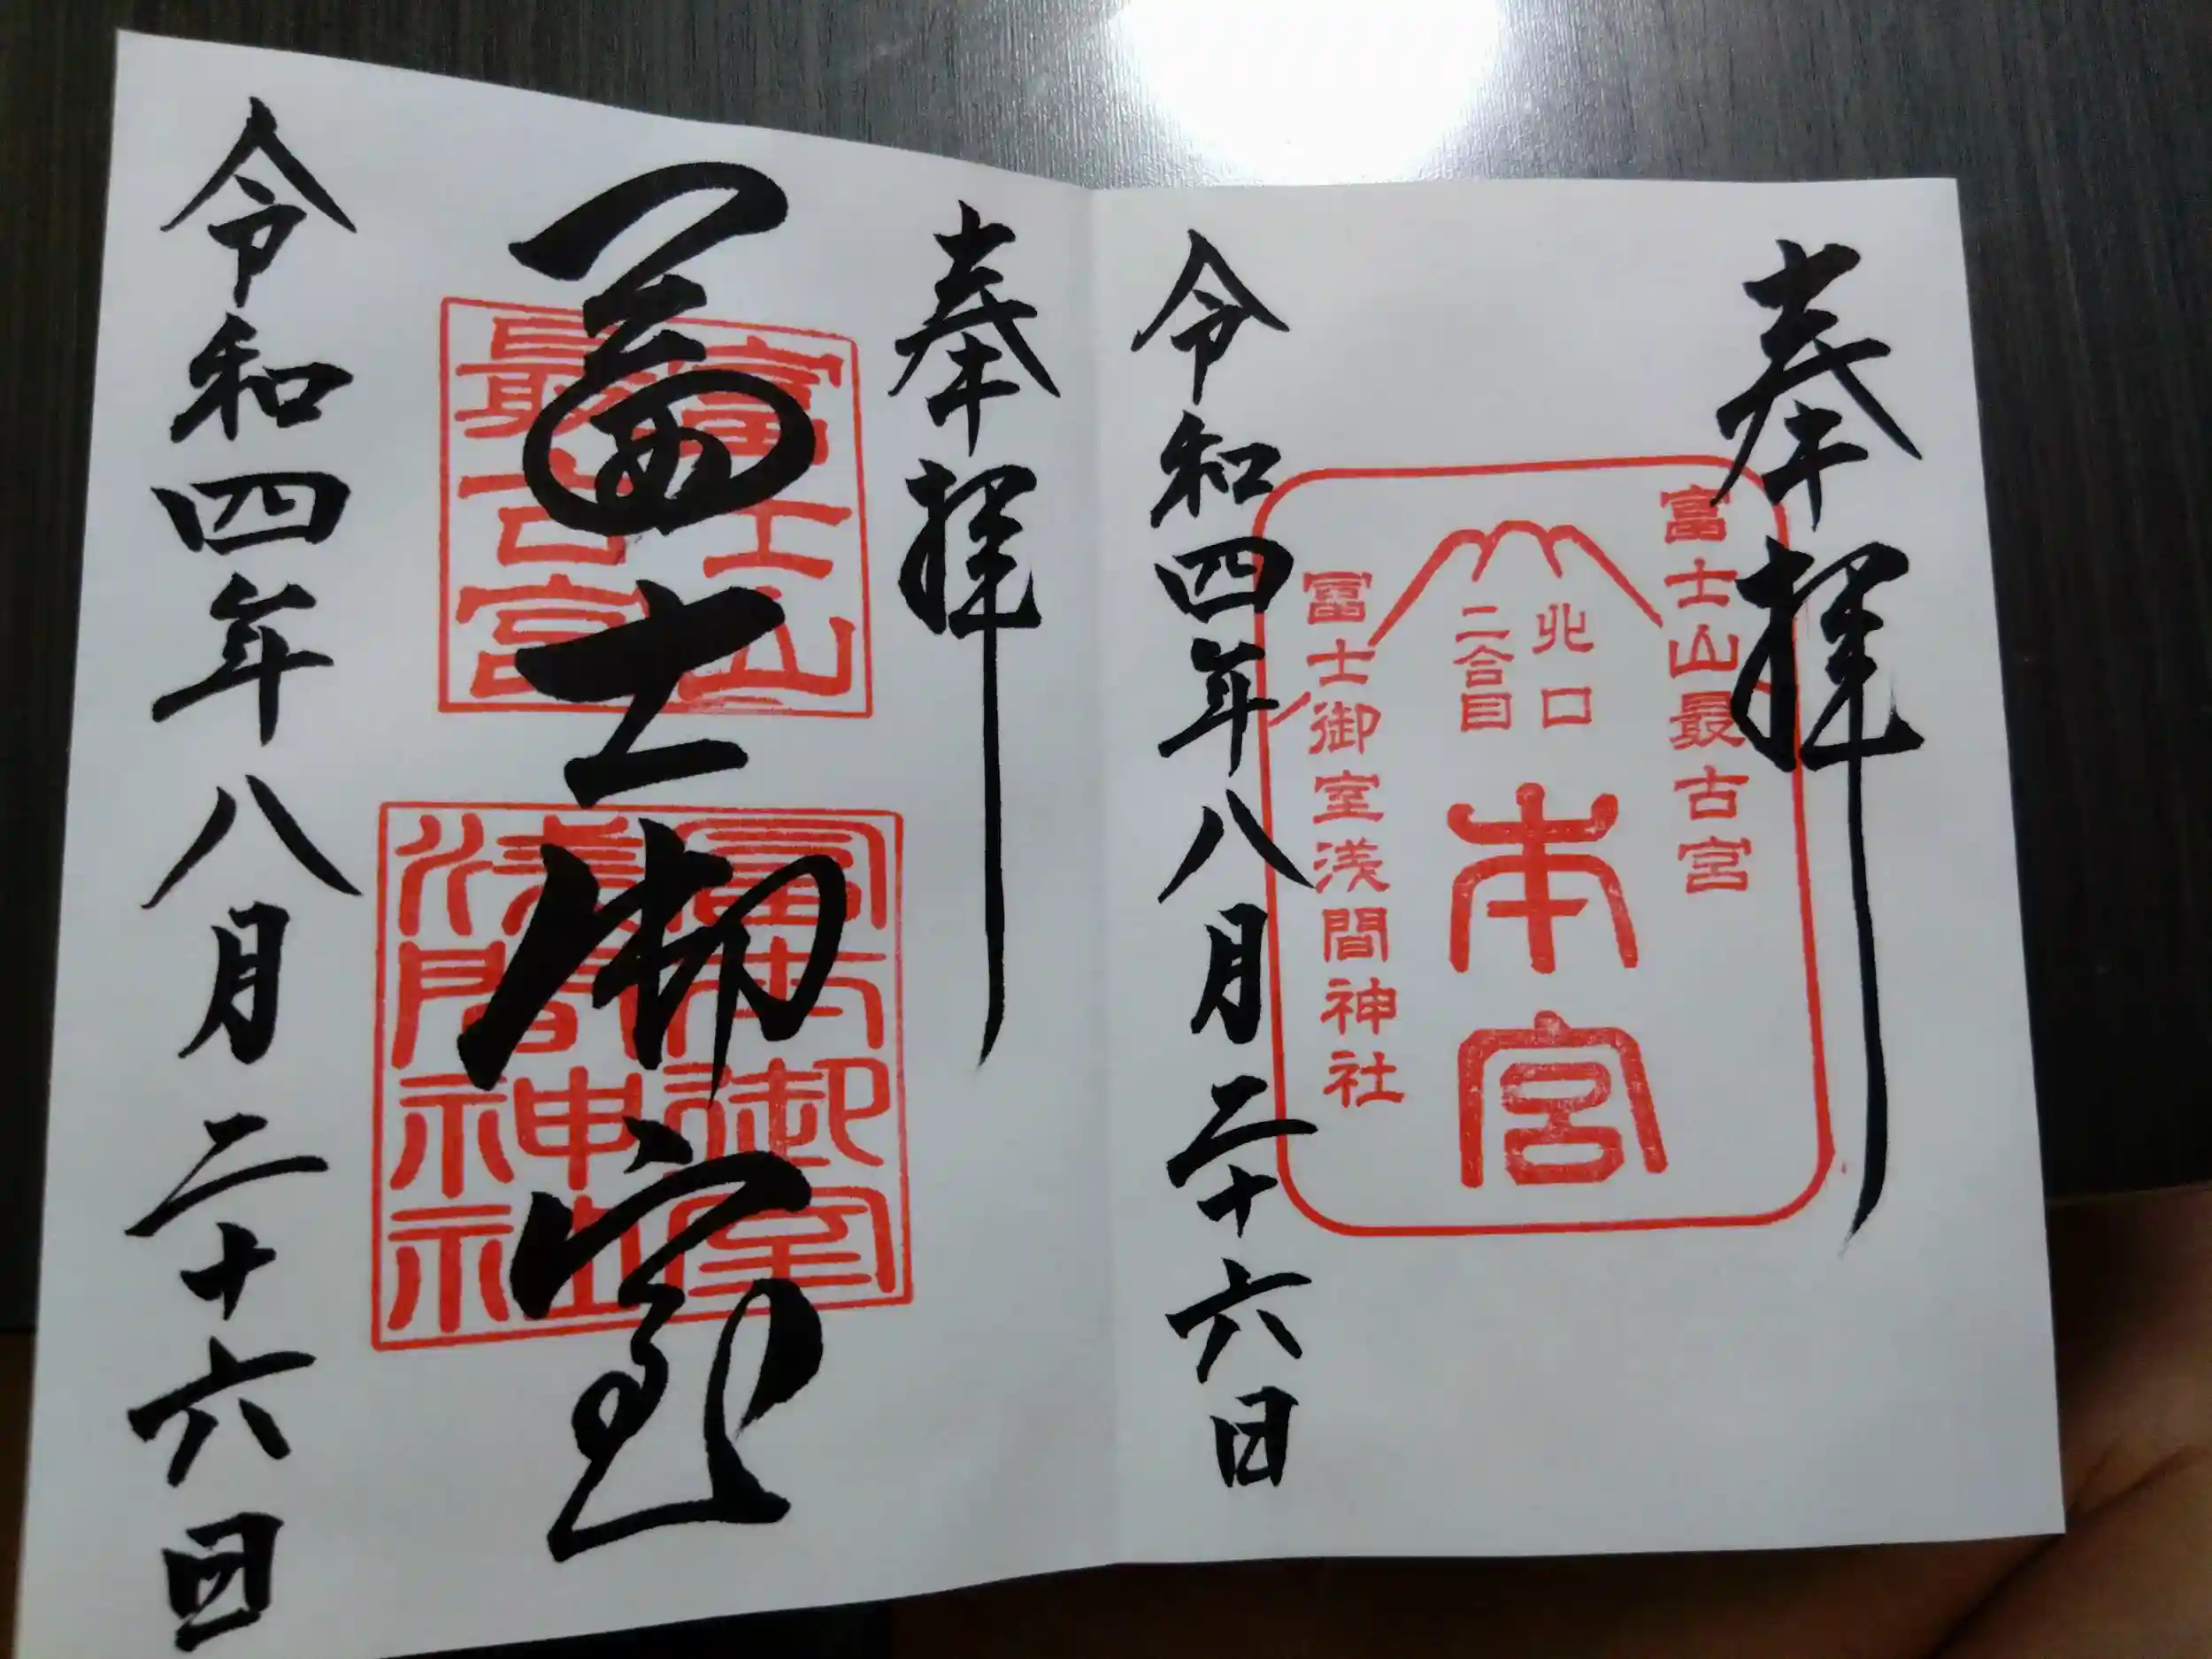 奉拝
富士山最古宮
北口
二合目
本宮
富士御室浅間神社
令和四年八月二十六日
奉拝
富士御室
富士山
最古宮
富士御室
浅間神社
令和四年八月二十六日